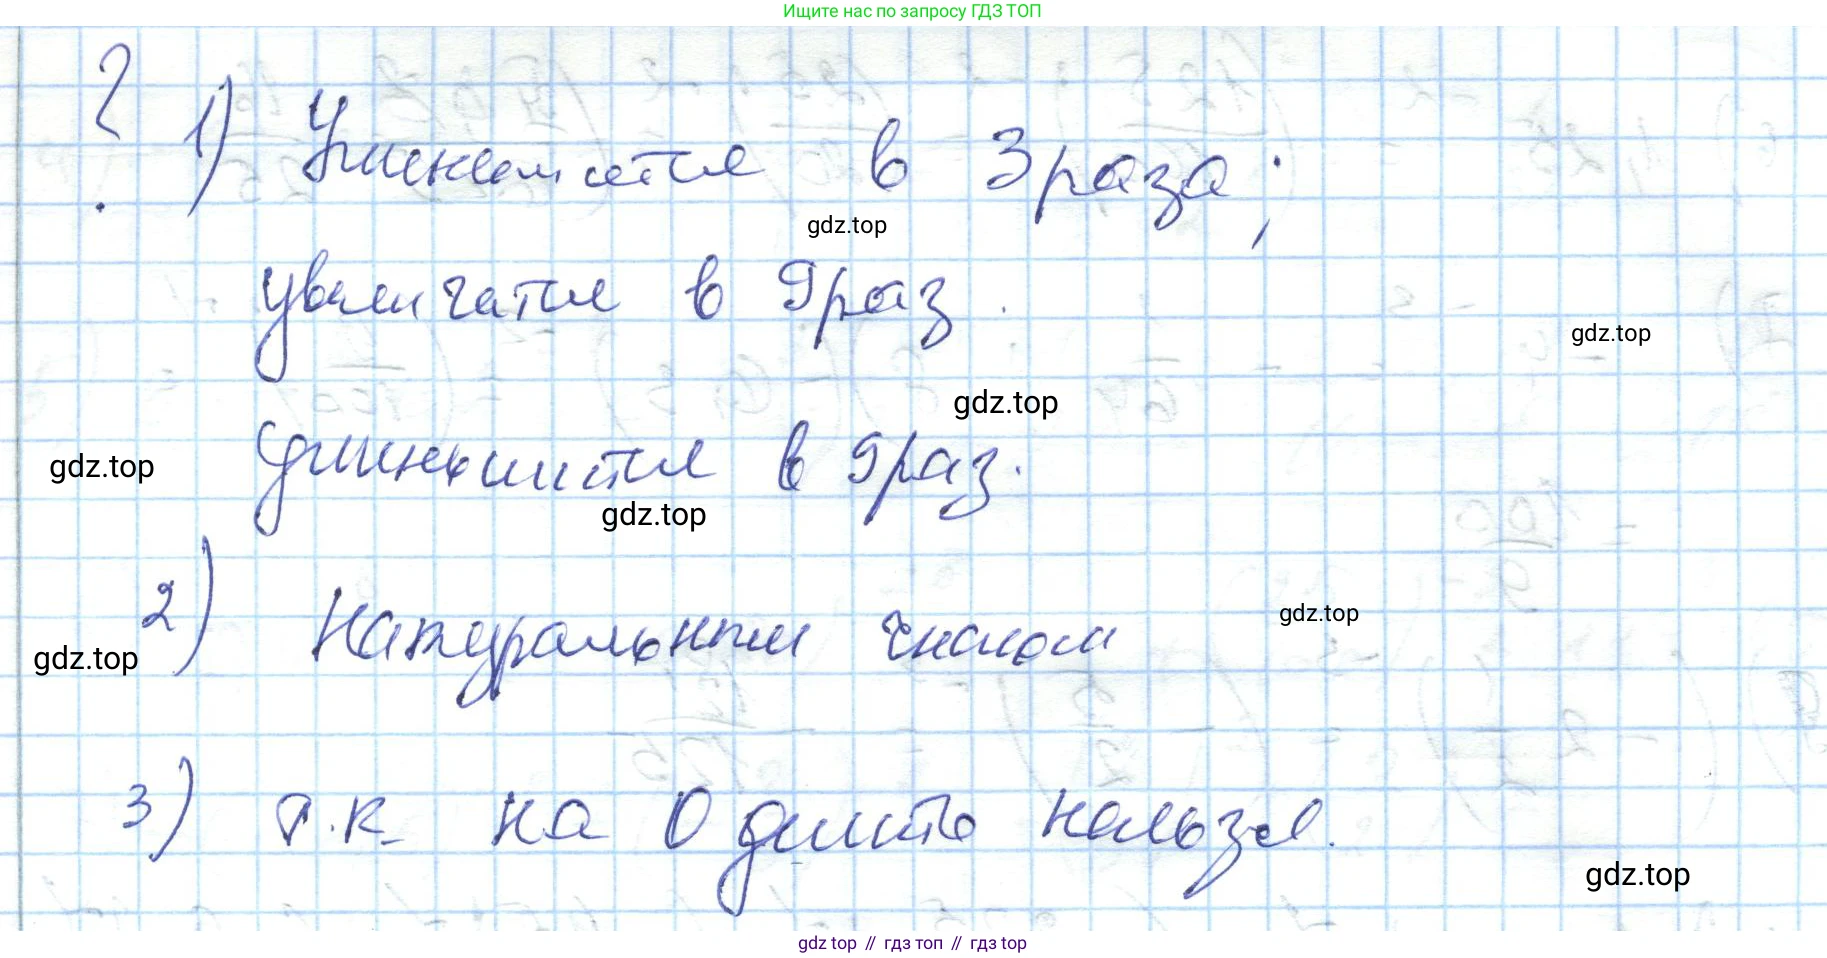 Ищите нас по запросу ГДЗ ТОП
? 1) Уменьшится в 3 раза;
gdz.top
увеличатся в 9 раз.
gdz.top
gdz.top
Уменьшится в 9 раз.
gdz.top
gdz.top
2) Натуральным числом
gdz.top
gdz.top
3) т.к на 0 делить нельзя.
gdz.top
gdz.top // гдз топ // гдз top